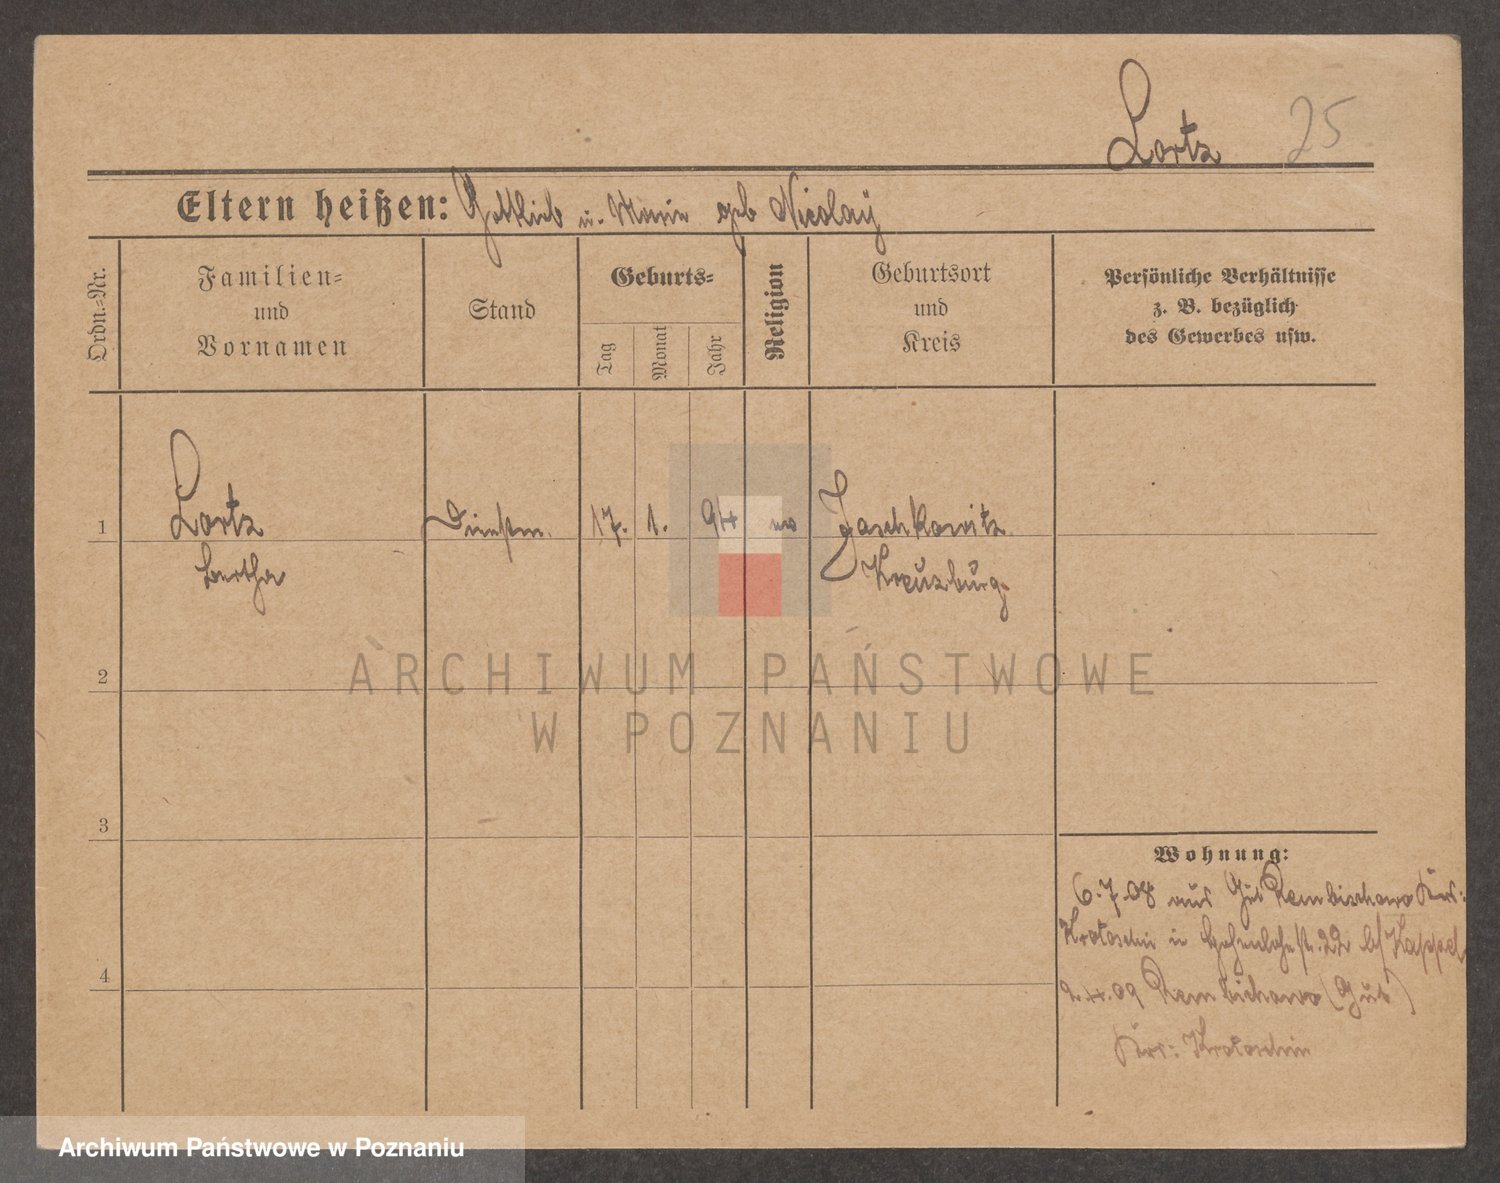 Lortz 25
Eltern heißen: Gottlieb u. Marie geb Nicolaÿ
Ordn.=Nr.
Familien=
und
Vornamen
Stand
Geburts=
Tag
Monat
Jahr
Religion
Geburtsort
und
Kreis
Persönliche Verhältnisse
z. B. bezüglich
des Gewerbes usw.
1 Lortz Dienstm. 17. 1. 94 ev Jaschkowitz
Bertha Kreuzburg.
2
3
4
Wohnung:
6.7.08 aus Gut Rembischowo Krs:
Krotoschin in Hohenlohestr. 22 b/ Kappel
2.4.09 Rembichowo (Gut)
Krs: Krotoschin
ARCHIWUM PAŃSTWOWE
W POZNANIU
Archiwum Państwowe w Poznaniu